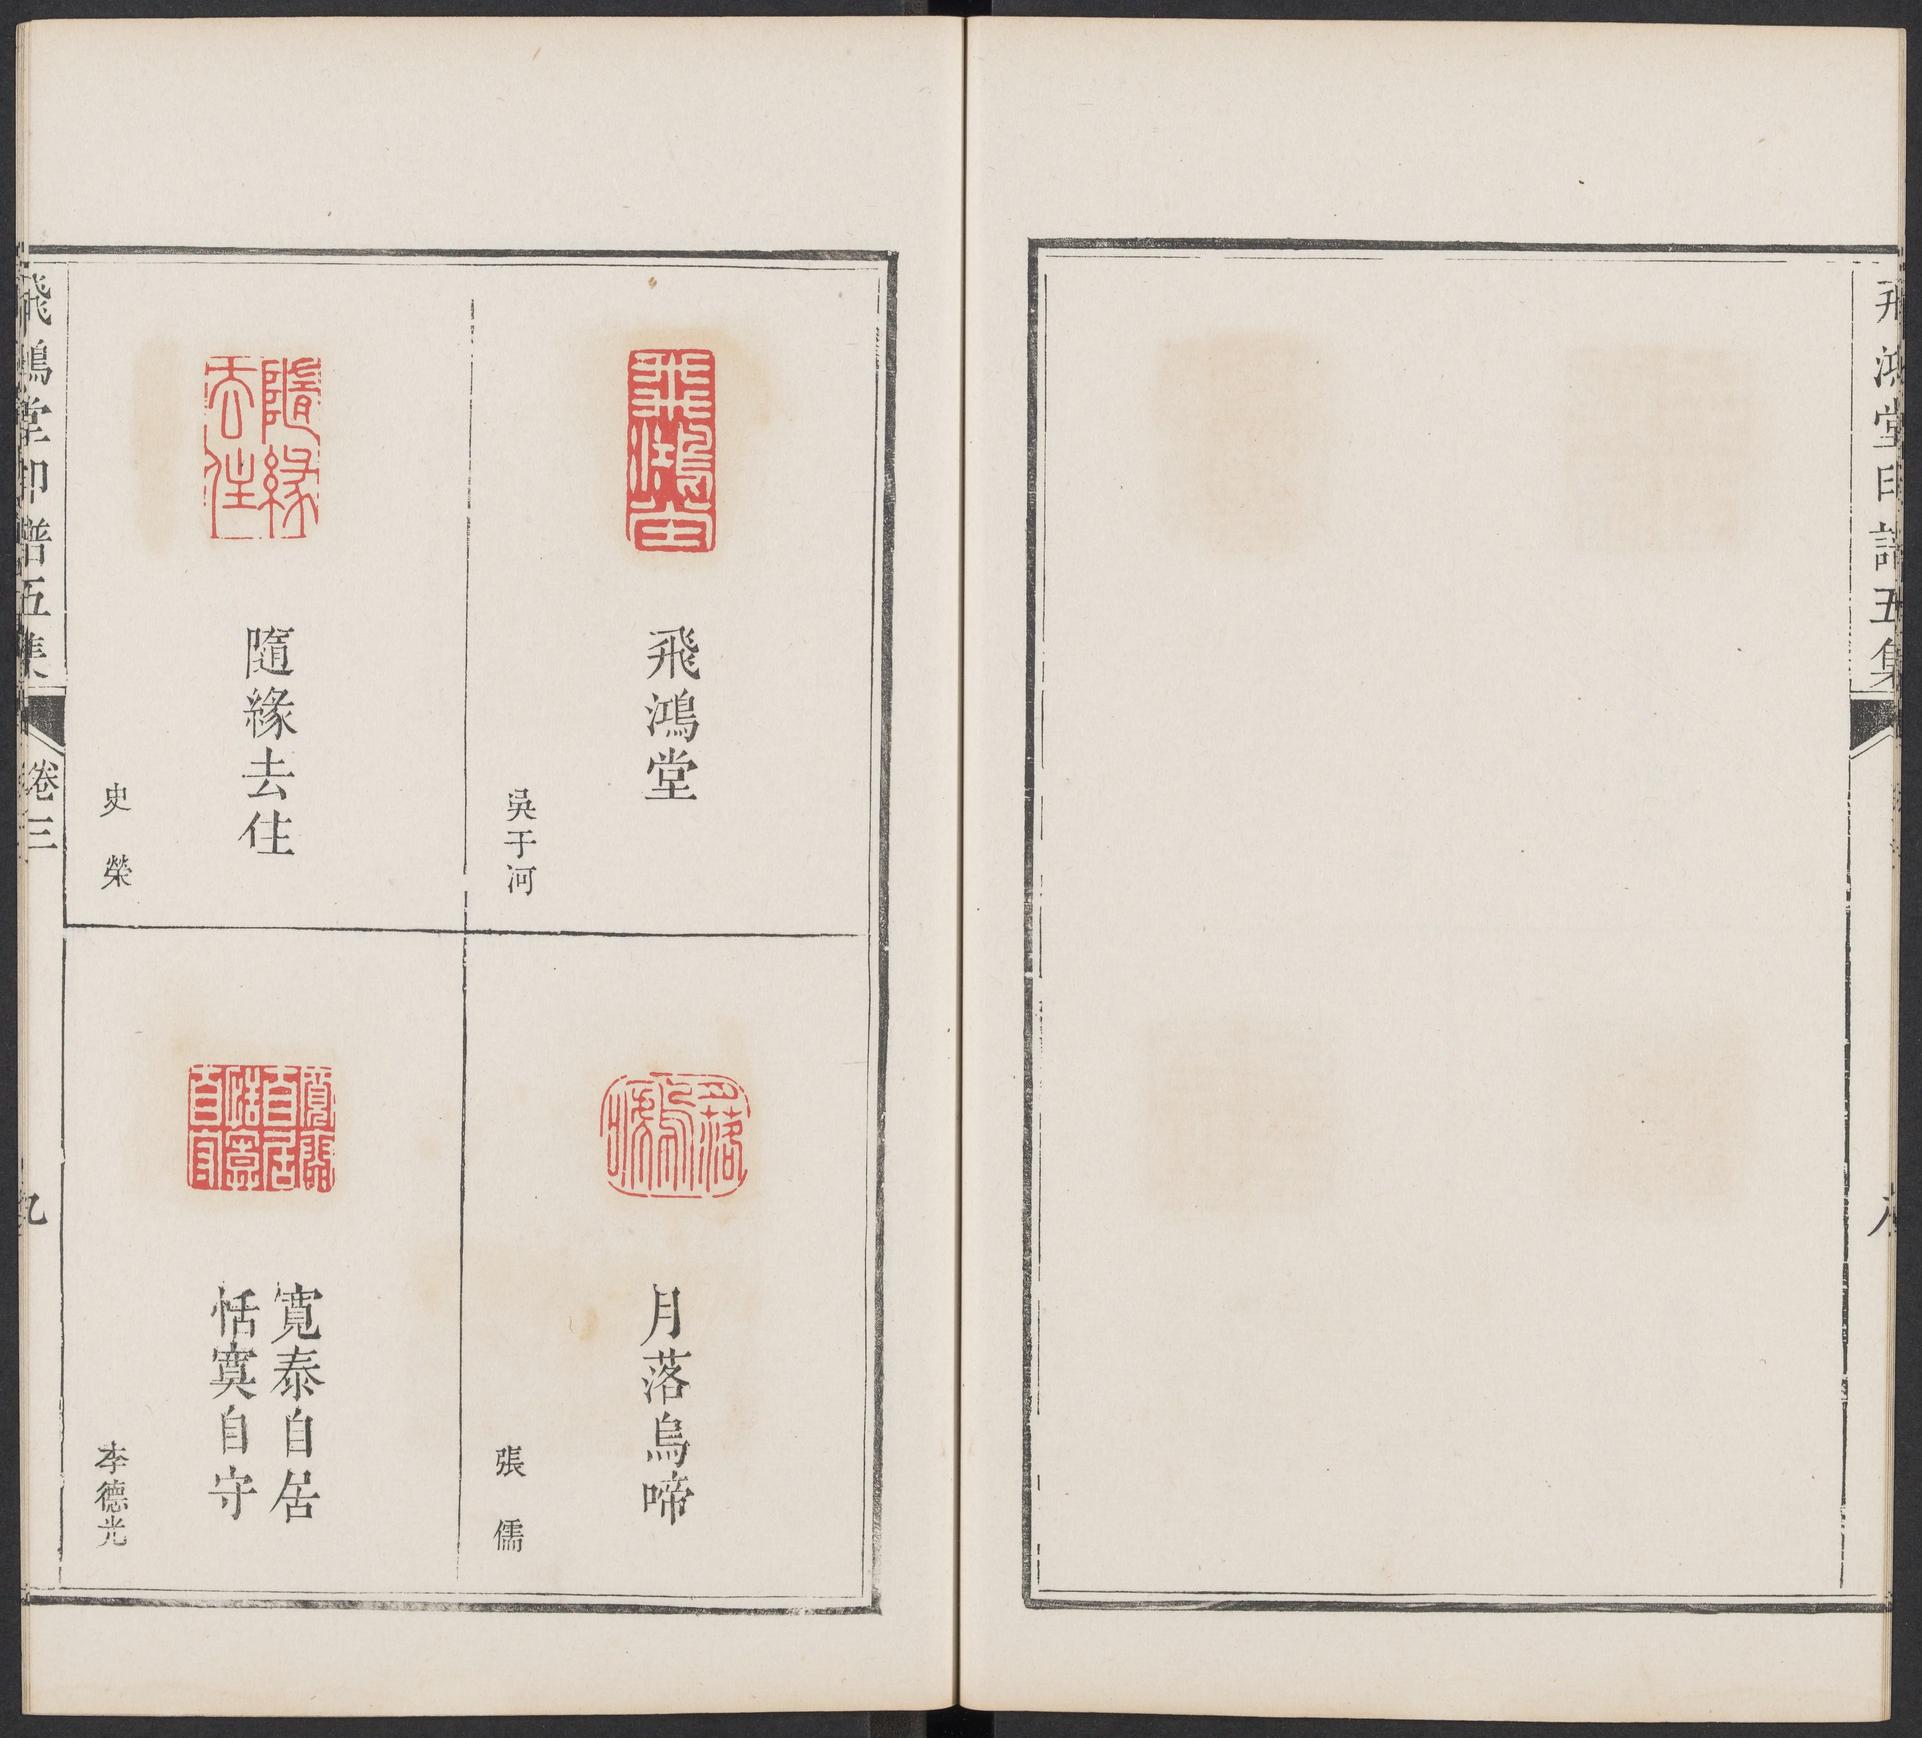 飛鴻堂印譜五集
飛鴻堂
飛鴻堂
吳于河
月落烏啼
月落烏啼
張儒
隨緣去住
隨緣去住
史榮
寬泰自居
恬寞自守
李德光
飛鴻堂印譜五集
卷三
九